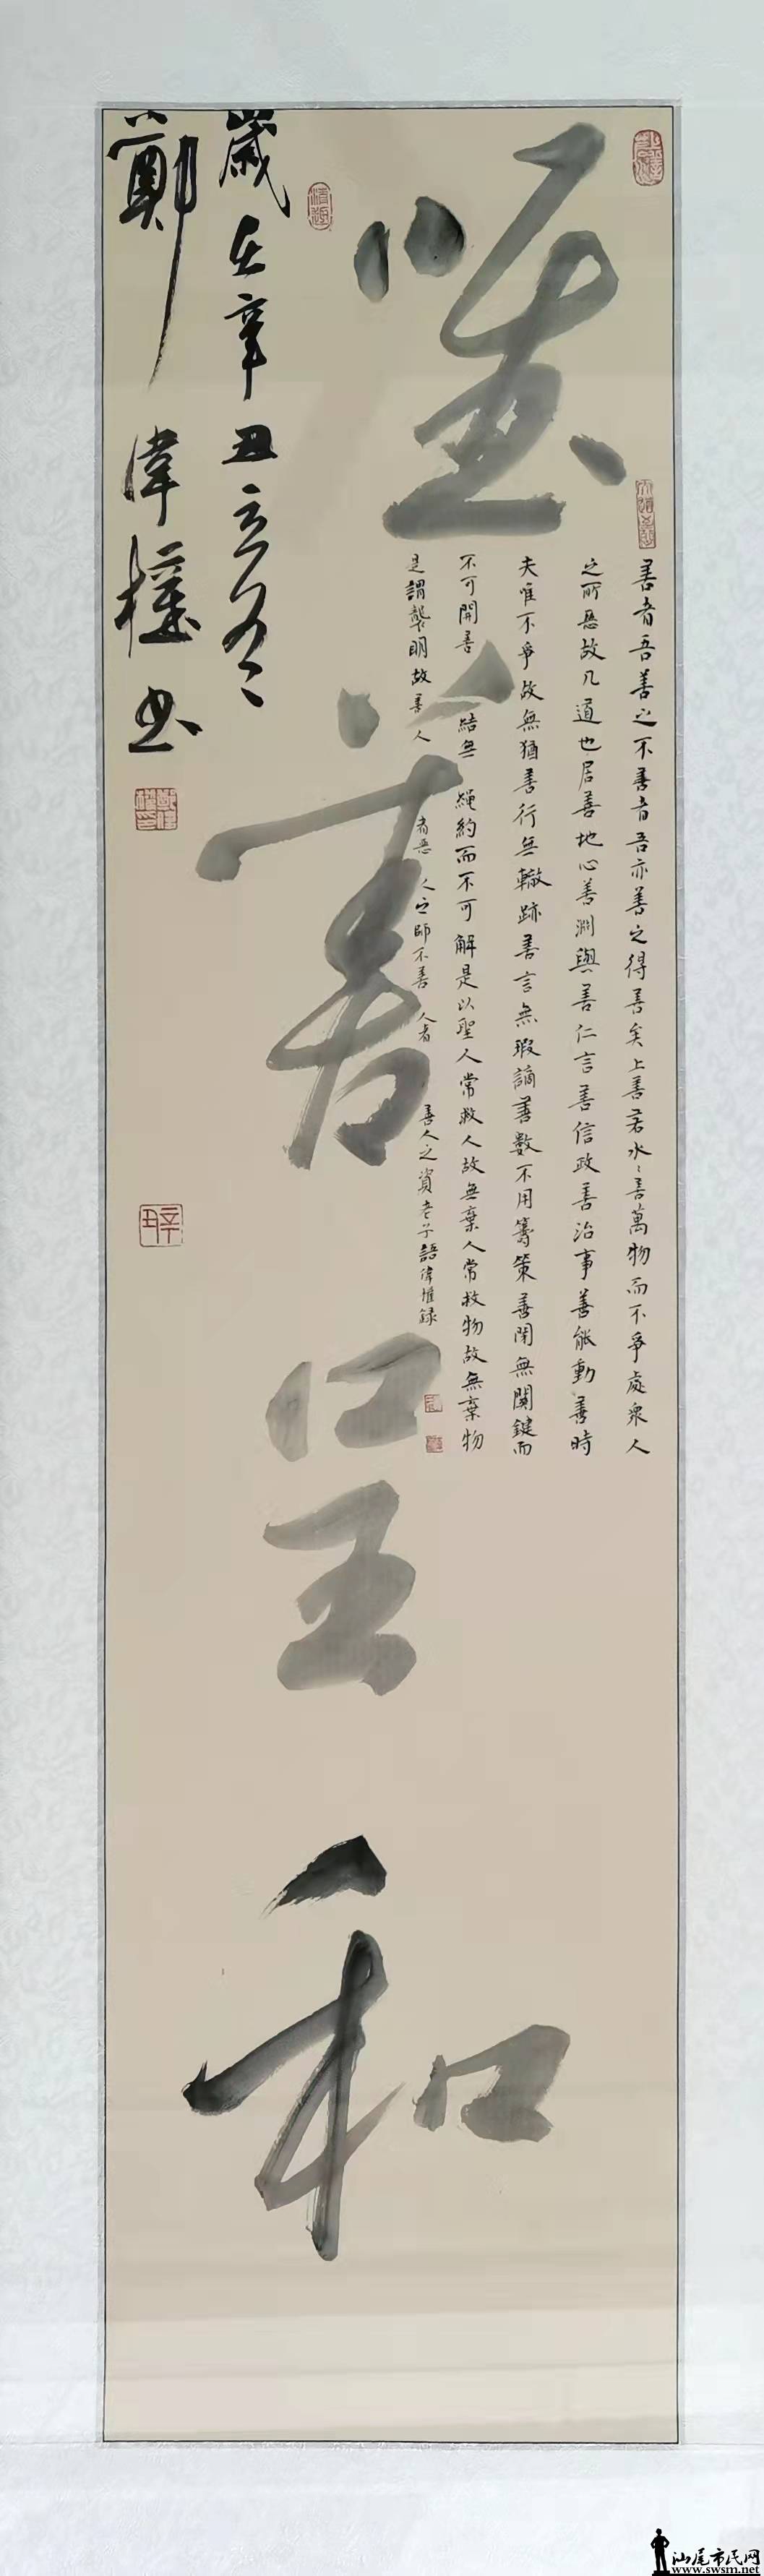 唯善呈和
善者吾善之不善者吾亦善之得善矣上善若水〻善萬物而不爭處衆人
之所惡故几道也居善地心善淵與善仁言善信政善治事善能動善時
夫唯不爭故無猶善行無轍跡善言無瑕謫善數不用籌策善閉無關鍵而
不可開善結無繩約而不可解是以聖人常救人故無棄人常救物故無棄物
是謂襲明故善人者惡人之師不善人者善人之資老子語偉權錄
歲在辛丑立冬
鄭偉權書
辛丑
汕尾市民网
www.swsm.net